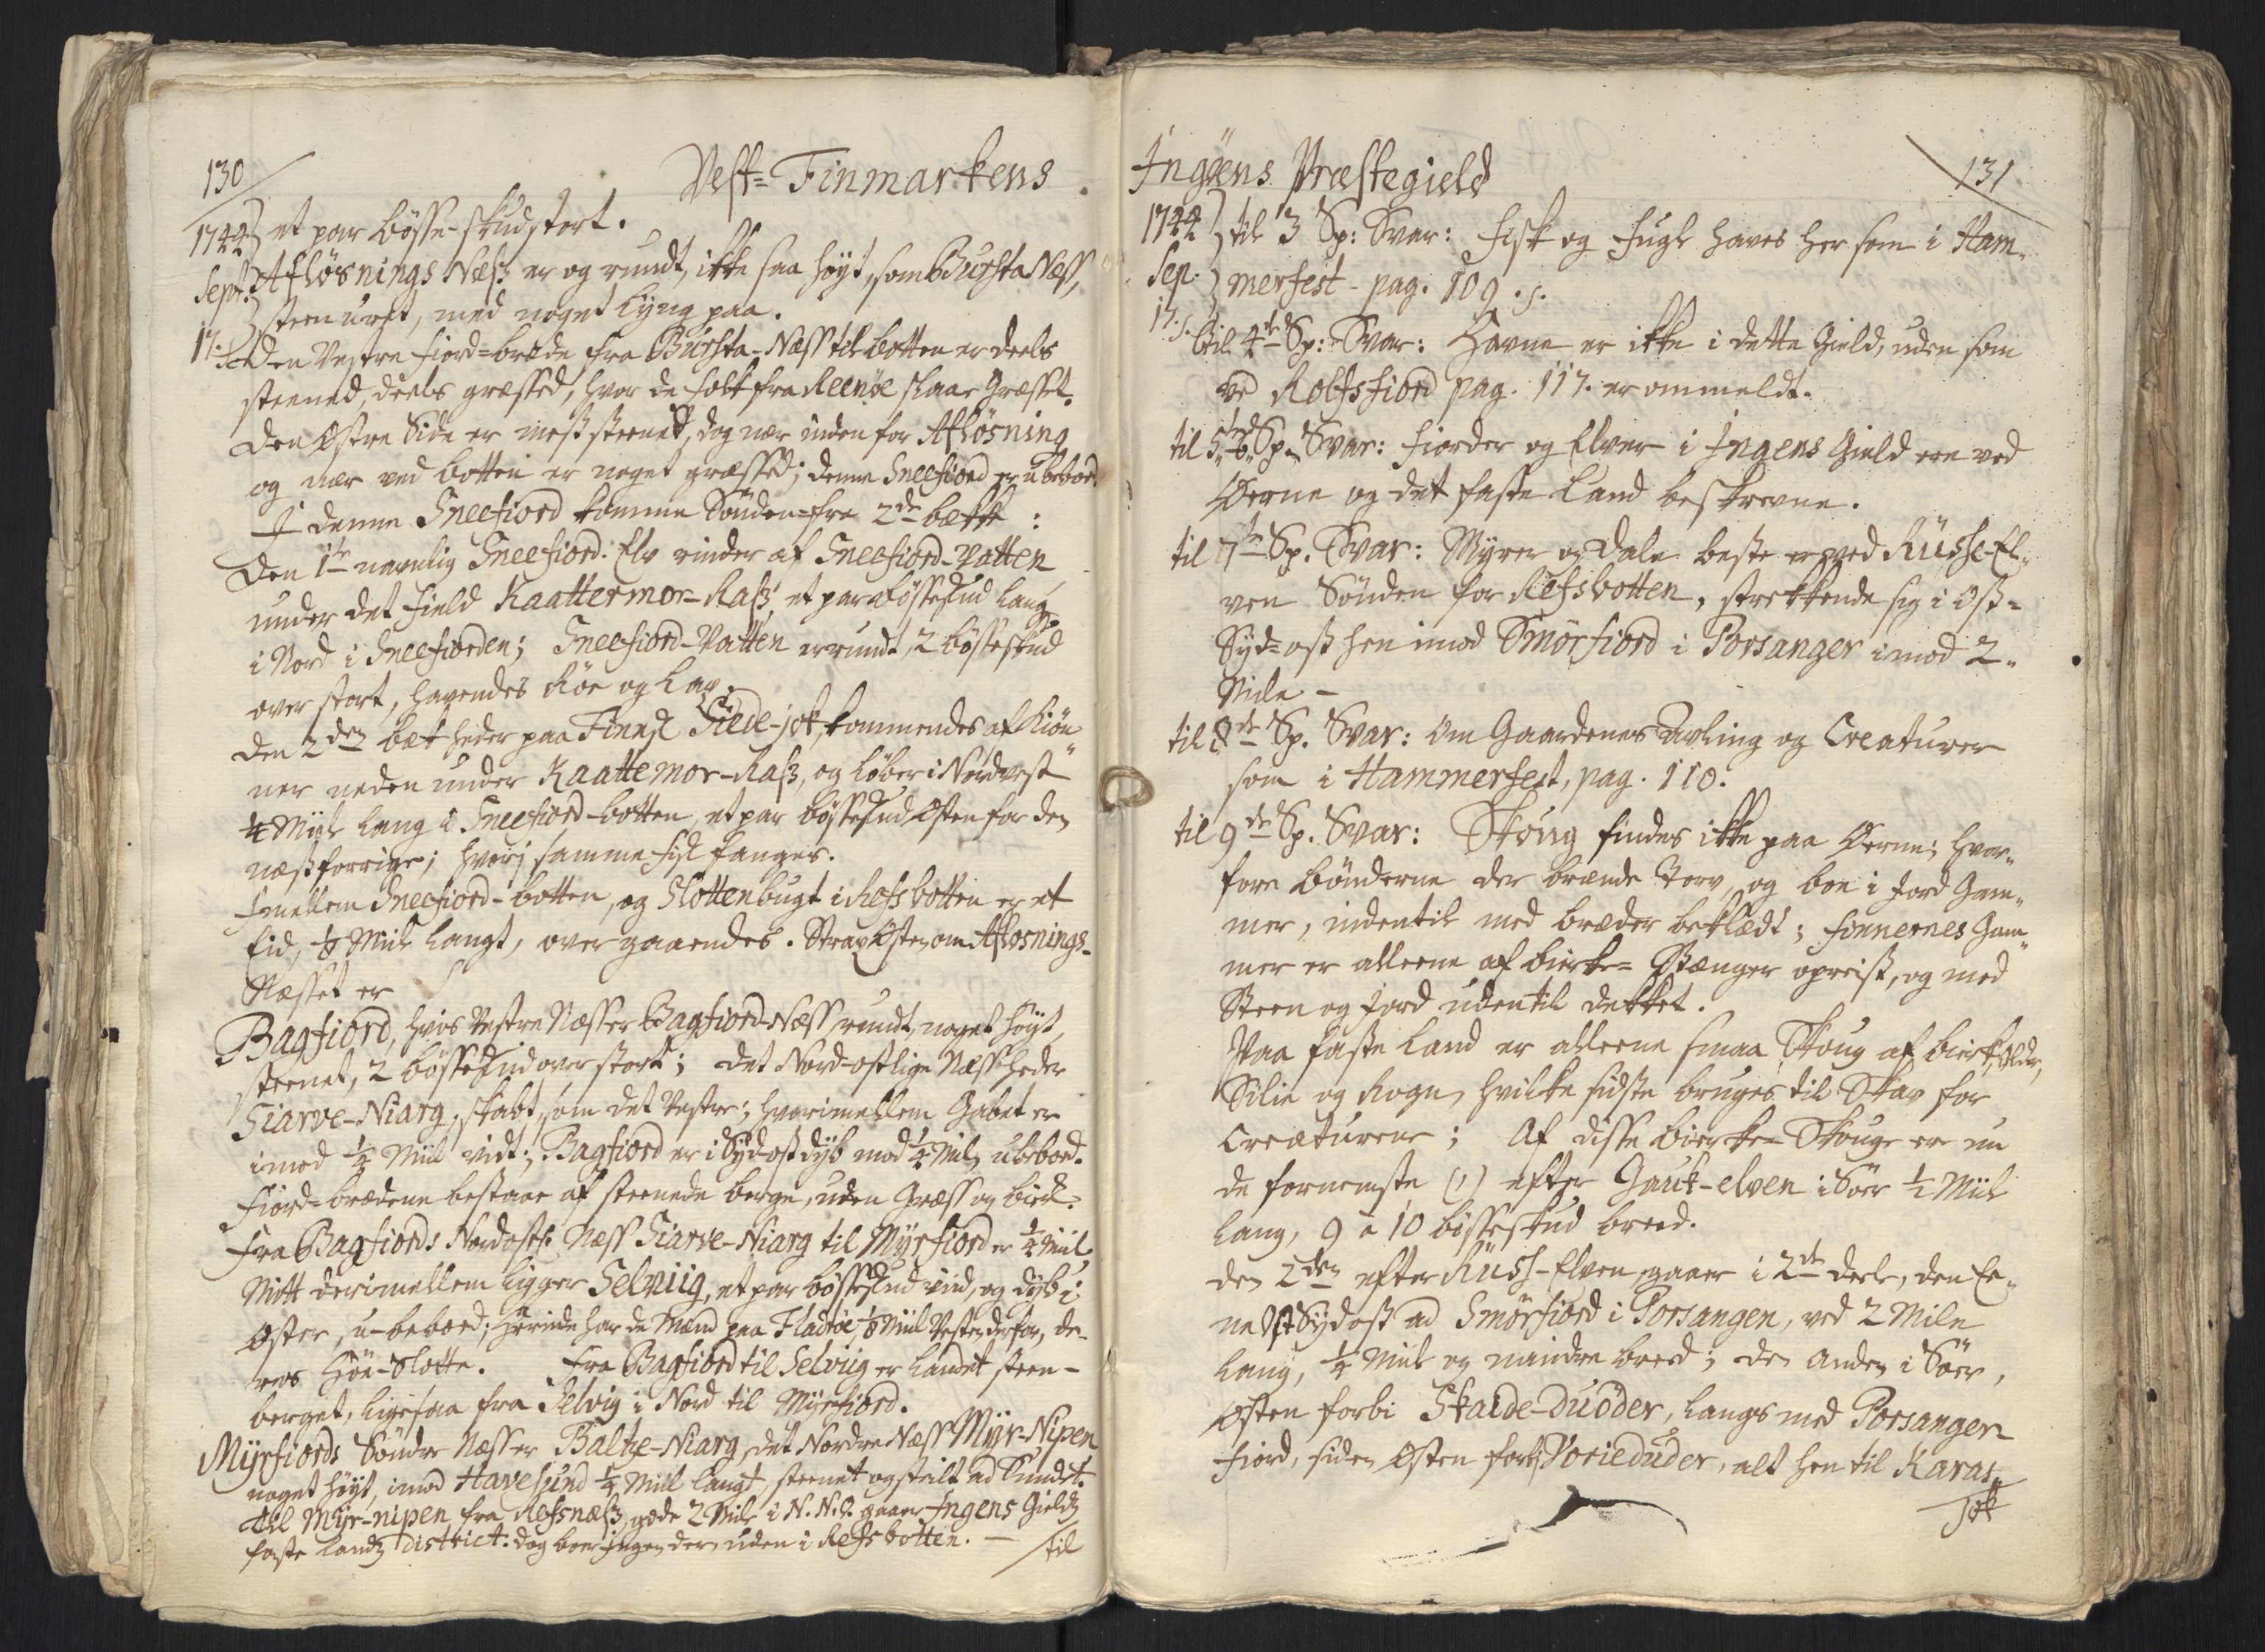 130
Vest-Finmarkens
1744 et par bösse-skud stort.
Sept. Aflösnings Næss er og rundt, ikke saa höyt, som Bursta Næss,
17. steenurt, med noget Lyng paa.
Den Vestre Fiord-brede fra Bursta-Næss til botten er deels
steened, deels græssed, hvor de folk fra Reenöe slaar Græsset.
Den Östre Side er mest steened, dog nær inden for Aflösning
og nær ved botten er noget græssed; denne Sneefiord er ubeboed.
I denne Sneefiord komme Sönden-fra 2de bække:
Den 1te navnlig Sneefiord-Elv rinder af Sneefiord-Vatten
under det Field Kaattermor-Rass, et par bösseskud lang
i Nord i Sneefiorden; Sneefiord-Vatten er rundt, 2 bösseskud
over stort, havendes Röe og Lax.
Den 2den bæk heder paa Finnsk Siede-jok, kommendes af Kiön-
ner neden under Kaattemor-Rass, og löber i Nordvest
¼ Myle lang i Sneefiord-botten, et par bösseskud Östen for den
næstforrige; hvori samme fisk fanges.
Imellem Sneefiord-botten, og Slottenbugt i Refsbotten er et
Eid, ⅛ Miil langt, over gaaendes. Strax Östen om Aflösnings-
Næsset er
Bagfiord, hvis Vestre Næss er Bagfiord-Næss, rundt, noget höyt,
steenet, 2 bösseskud over stort; det Nord-ostlige Næss heder
Giarve-Niarg, skabt, som det Vestre; hvorimellem Gabet er
imod ¼ Miil vidt; Bagfiord er i Syd-ost dyb mod ¼ Miil, ubeboed.
Fiord-brædene bestaar af steenede berge, uden Græss og birk.
Fra Bagfiords Nordostl. Næss Giarve-Niarg til Myrfiord er ¼ Miil
Mitt derimellem ligger Selviig, et par bösseskud viid, og dyb i
Öster, u-beboed; Herinde har de Mænd paa Fladöe ⅛ Miil Vesten derfor, de-
res Höe-Slotte. Fra Bagfiord til Selviig er Landet steen-
berget, ligesaa fra Selvig i Nord til Myrfiord.
Myrfiords Söndre Næss er Baltze-Niarg, det Nordre Næss Myr-Nipen
noget höyt, imod Havesund ¼ Miil langt, steenet og steilt ad Sundet.
Til Myr-nipen fra Refsnæss, gode 2 Mile i N.N.O. gaaer Ingens Gields
faste Lands District: dog boer ingen der, uden i Refsbotten. —
til
Ingöens Præstegield
131
1744 til 3 Sp: Svar: Fisk og Fugle haves her som i Ham-
Sep. merfest - pag. 109.s.
17.s. til 4de Sp: Svar: Havne er ikke i dette Gield, uden som
ved Rolfsfiord pag. 117. er ommeldt.
til 5te, 6te Sp. Svar: Fiorder og Elver i Ingens Gield ere ved
Öerne og det faste Land beskrevne.
til 7de Sp. Svar: Myrer og Dale beste er ved Russe-El-
ven Sönden for Refsbotten, strekkende sig i Ost-
Syd-ost hen imod Smörfiord i Porsanger imod 2
Mile -
til 8de Sp. Svar: Om Gaardenes Avling og Creaturer
som i Hammerfest, pag. 110.
til 9de Sp. Svar: Skoug findes ikke paa Öerne; hvor-
fore bönderne der brænde Torv, og boe i Jord Gam-
mer, indentil med bræder beklædt; Finnernes Gam-
mer er alleene af birke-Stænger opreist, og med
Steen og Jord udentil dekket.
Paa faste Land er alleene smaa Skoug af birk, Older,
Silie og Rogn, hvilke sidste bruges til Skav for
Creaturene; Af disse birke-Skouge er nu
de fornemste (1) efter Gauk-elven i Sör ½ Miil
lang, 9 à 10 bösseskud breed.
den 2den efter Russ-Elven, gaaer i 2de deele, den Ee-
ne i Sydost ad Smörfiord i Porsangen, ved 2 Mile
lang, ¼ Miil og mindre breed; den anden i Sör,
Östen forbi Skaide-duöder, langs med Porsanger
Fiord, siden Östen forbi Vorieduder, alt hen til Karas-
jok